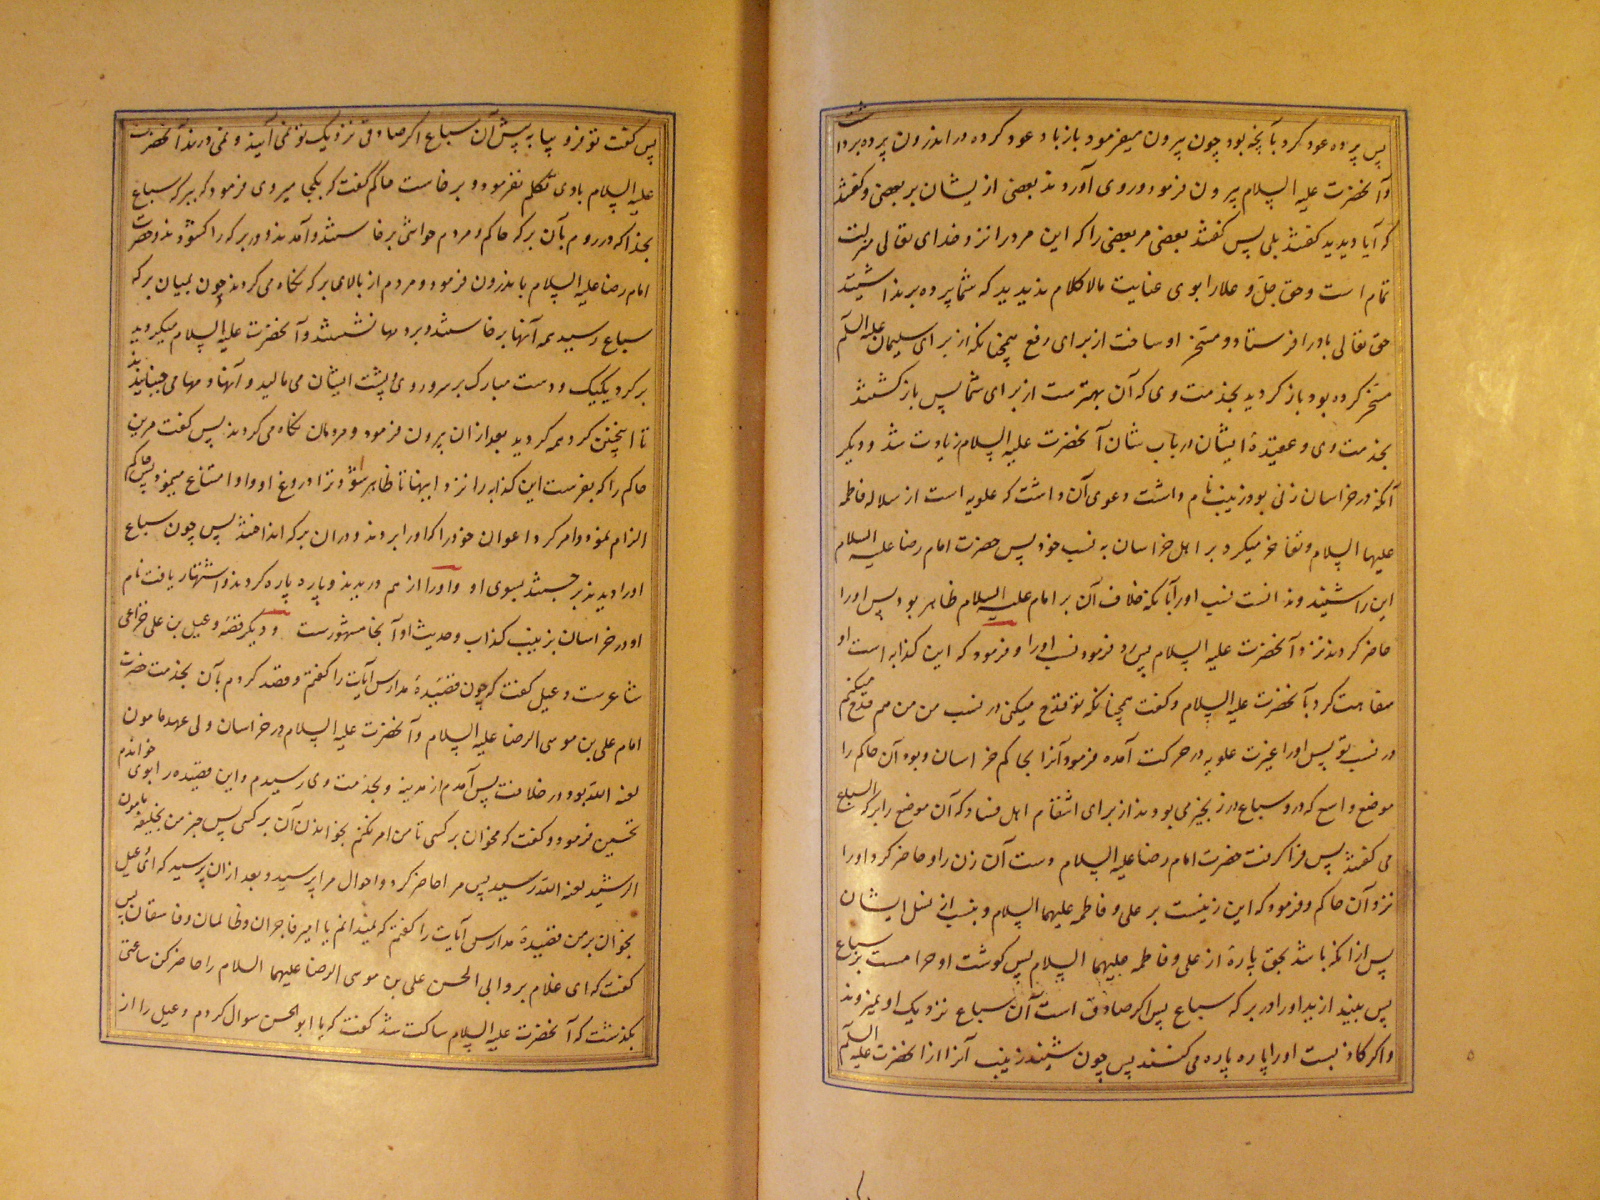 پس پرده عود کرد بآنچه بود چون بیرون میفرمود باز باد عود کرده در اندرون پرده برداشت
و آنحضرت علیه السلام بیرون فرمود و روی آوردند بعضی از یشان بر بعضی و گفتند
که آیا دیدید گفتند بلی پس گفتند بعضی مر بعضی را که این مرد را نزد خدای تعالی منزلت
تمام است و حق جل و علا را بوی عنایت مالاکلام ندیدید که شما پرده برنداشتید
حق تعالی باد را فرستاد و مسخر او ساخت از برای رفع همچنانکه از برای سلیمان علیه السلام
مسخر کرده بود باز گردید بخدمت وی که آن بهترست از برای شما پس باز گشتند
بخدمت وی و عقیدهٔ ایشان در باب شان آنحضرت علیه السلام زیادت شد و دیگر
آنکه در خراسان زنی بود زینب نام داشت دعوی آن داشت که علویه است از سلاله فاطمه
علیها السلام و تفاخر میکرد بر اهل خراسان به نسب خود پس حضرت امام رضا علیه السلام
این را شنیدند و ندانست نسب او را با آنکه خلاف آن بر امام علیه السلام ظاهر بود پس او را
حاضر کردند نزد آنحضرت علیه السلام پس رد فرمود نسب او را و فرمود که این کذابه است او
سفاهت کرد بآنحضرت علیه السلام و گفت همچنانکه تو قدح میکنی در نسب من من هم قدح میکنم
در نسب تو پس او را غیرت علویه در حرکت آمده فرمود آنرا بحاکم خراسان و بود آن حاکم را
موضع واسع که درو سباع در زنجیر می بودند از برای انتقام اهل فساد که آن موضع را برکه السباع
می گفتند پس فرا گرفت حضرت امام رضا علیه السلام دست آن زن را و حاضر کرد او را
نزد آن حاکم و فرمود که این زنیست بر علی و فاطمه علیهما السلام و نیست از نسل ایشان
پس از آنکه باشد بحق پارهٔ از علی و فاطمه علیهما السلام پس گوشت او حرامست بر سباع
پس بیندازید او را در برکه سباع پس اگر صادق است آن سباع نزدیک او نمیروند
و اگر کاذبست او را پاره پاره می کنند پس چون شنید زینب آنرا از آنحضرت علیه السلام
پس گفت تو فرو بیا به پیش آن سباع اگر صادقی نزدیک تو نمی آیند و نمی درند آنحضرت
علیه السلام باوی تکلم نفرمود و برخاست حاکم گفت که بکجا میروی فرمود که ببرکه سباع
بخدا که در روم بآن برکه حاکم و مردم حواشی برخاستند و آمدند و در برکه را گشودند و حضرت
امام رضا علیه السلام باندرون فرمود و مردم از بالای برکه نگاه می کردند چون بمیان برکه
سباع رسید همه آنها برخاستند و بر دمها نشستند و آنحضرت علیه السلام میگردید
بر گرد یکیک و دست مبارک بر سر و روی و پشت ایشان می مالید و آنها دمها می جنبانیدند
تا اینچنین گرد همه گردید بعد از ان بیرون فرمود و مردمان نگاه می کردند پس گفت مرین
حاکم را که بفرست این کذابه را نزد اینها تا ظاهر شود ترا دروغ او و او امتناع مینمود پس حاکم
الزام نمود و امر کرد اعوان خود را که او را بردند و در ان برکه انداختند پس چون سباع
او را دیدند برجستند بسوی او و او را از هم دریدند و پاره پاره کردند و اشتهار یافت نام
او در خراسان بزینب کذاب و حدیث او آنجا مشهورست و دیگر قصه دعبل بن علی خزاعی
شاعرست دعبل گفت که چون قصیدهٔ مدارس آیات را گفتم و قصد کردم بآن بخدمت حضرت
امام علی بن موسی الرضا علیه السلام و آنحضرت علیه السلام در خراسان ولی عهد مامون
لعنه الله بود در خلافت پس آمدم از مدینه و بخدمت وی رسیدم و این قصیده را بوی خواندم
تحسین فرمود و گفت که مخوان بر کسی تا من امر نکنم بخواندن آن بر کسی پس خبر من بخلیفه مامون
الرشید لعنه الله رسید پس مرا حاضر کرد و احوال مرا پرسید و بعد از ان پرسید که ای دعبل
بخوان بر من قصیدهٔ مدارس آیات را گفتم که نمیدانم یا امیر فاجران و ظالمان و فاسقان پس
گفت که ای غلام برو ابی الحسن علی بن موسی الرضا علیهما السلام را حاضر کن ساعتی
بگذشت که آنحضرت علیه السلام ساکت شد گفت که یا ابو الحسن سوال کردم دعبل را از